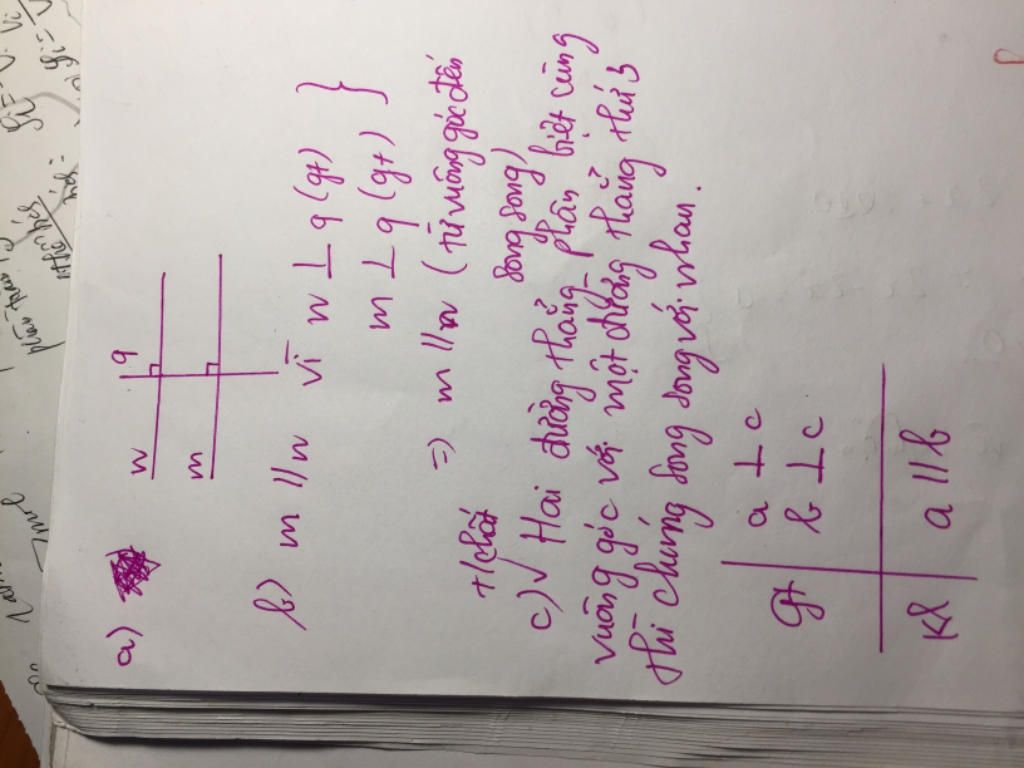 a)
q
n
m
b) m // n vì n ⊥ q (gt) }
m ⊥ q (gt)
=> m // n (từ vuông góc đến
song song)
t/chất
c) √ Hai đường thẳng phân biệt cùng
vuông góc với một đường thẳng thứ 3
thì chúng song song với nhau.
gt | a ⊥ c
b ⊥ c
kl | a // b